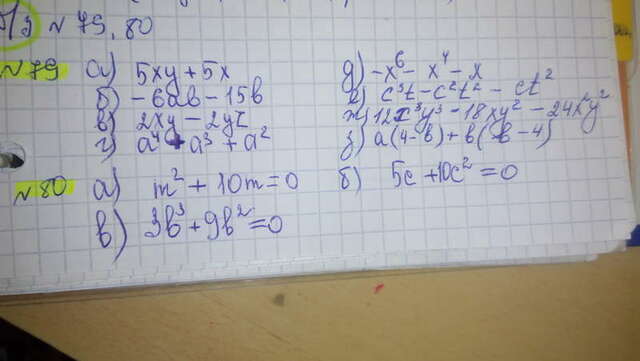 Д/з № 79, 80
№ 79 а) 5xy + 5x
б) - 6ab - 15b
в) 2xy - 2yz
г) a⁴ + a³ + a²
д) -x⁶ - x⁴ - x
е) c³t - c²t² - ct²
ж) 12x³y³ - 18xy² - 24x²y²
з) a(4-b) + b(b-4)
№ 80 а) m² + 10m = 0
б) 5c + 10c² = 0
в) 3b³ + 9b² = 0